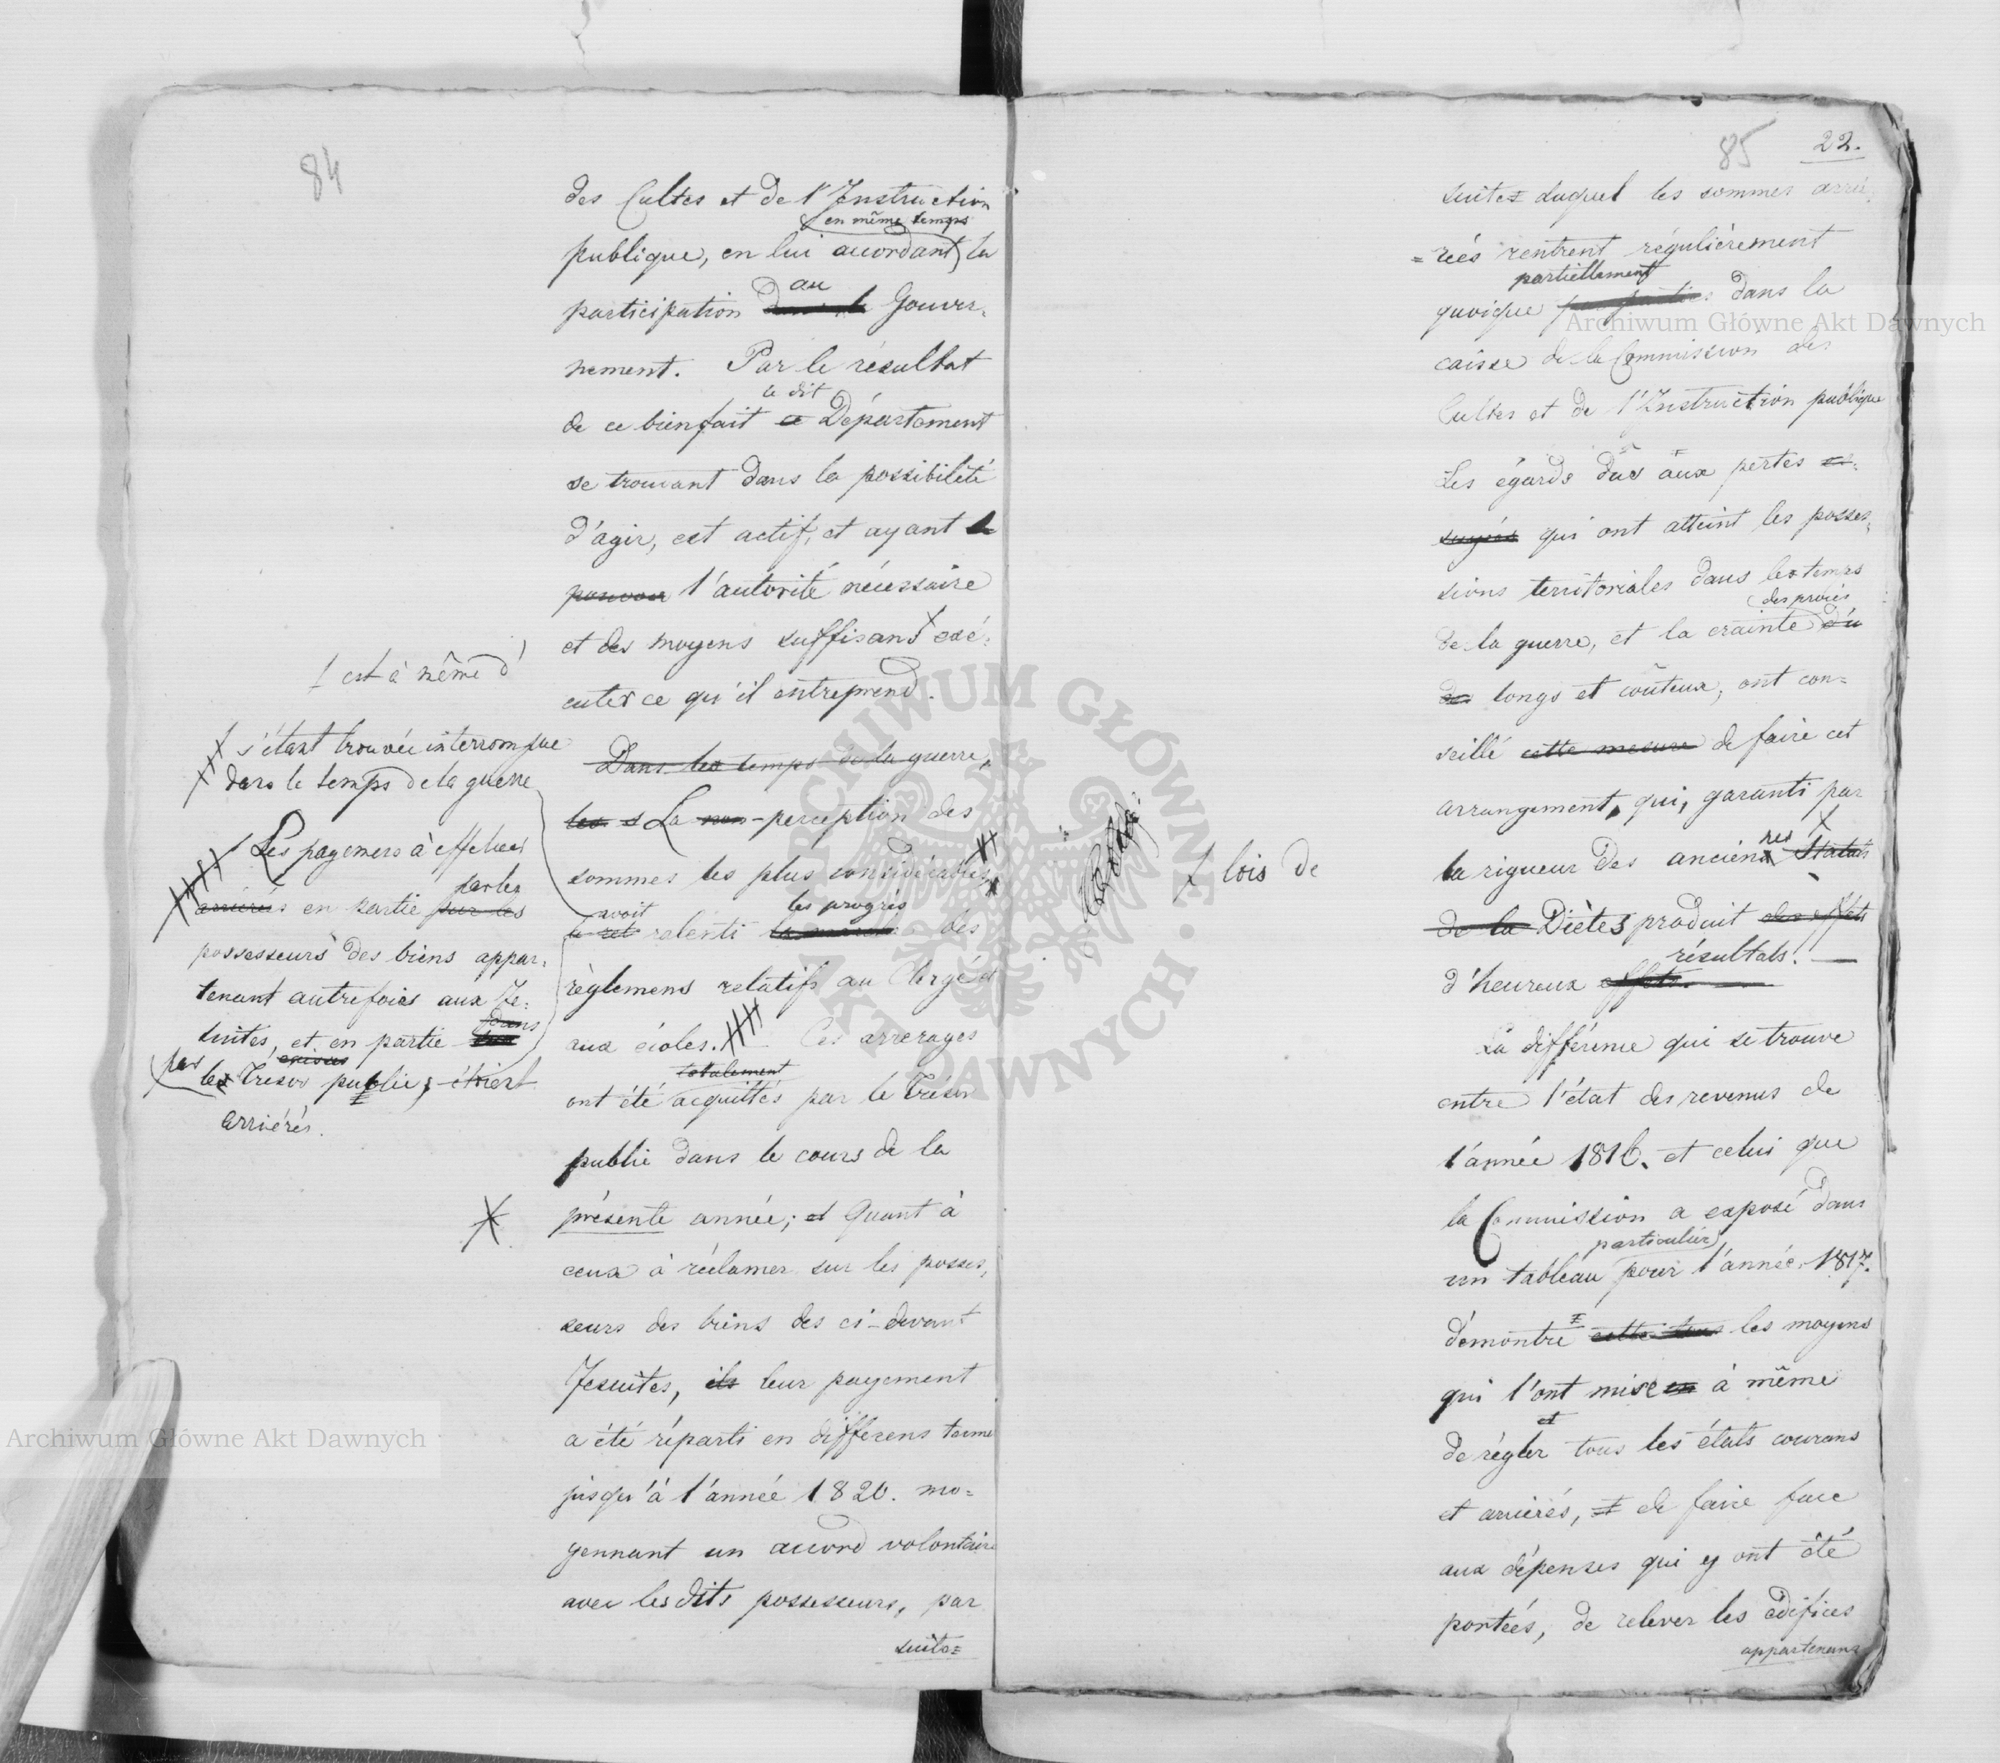 84
des Cultes et de l'Instruction
en même temps
publique, en lui accordant la
au
participation dans le Gouver-
nement. Par le résultat
le dit
de ce bienfait ce Département
se trouvant dans la possibilité
d'agir, est actif, et ayant le
pouvoir l'autorité nécessaire
et des moyens suffisans exé-
cuter ce qu'il entreprend.
Dans les temps de la guerre,
les s La non-perception des
sommes les plus considérables
avoit les progrès
a ret ralenti la marche des
règlemens relatifs au Clergé et
aux écoles. Ces arrerages
totalement
ont été acquittés par le Trésor
public dans le cours de la
présente année; et Quant à
ceux à réclamer sur les posses-
seurs des biens des ci-devant
Jesuites, ils leur payement
a été réparti en différens terme
jusqu'à l'année 1820. mo-
yennant un accord volontaire
avec les dits possesseurs, par
suite=
est à même d'
s'étant trouvée interrompue
dans le temps de la guerre
Les payemens à effectuer
par les
arriérés en partie par les
possesseurs des biens appar-
tenant autrefois aux Je-
dans
suites, et en partie
caisses
par les Trésor public, étoient
arriérés.
85 22.
suite= duquel les sommes arrié-
=rées rentrent régulièrement
partiellement
quoique par parties dans la
caisse de la Commission des
Cultes et de l'Instruction publique
Les égards dus aux pertes es-
suyées qui ont atteint les posses-
sions territoriales dans les temps
des procès
de la guerre, et la crainte du
des longs et coûteux, ont con=
seillé cette mesure de faire cet
arrangement, qui, garanti par
nes
la rigueur des anciens Statuts
de la Diètes produit des effets
résultats.
d'heureux effets.
La différence qui se trouve
entre l'état des revenus de
l'année 1816. et celui que
la Commission a exposé dans
particulier
un tableau pour l'année 1817.
démontre cette tous les moyens
qui l'ont mise en à même
et
de régler tous les états courans
et arriérés, et de faire face
aux dépenses qui y ont été
portées, de relever les édifices
appartenans
lois de
Archiwum Główne Akt Dawnych
Archiwum Główne Akt Dawnych
ARCHIWUM GŁÓWNE · AKT DAWNYCH ·